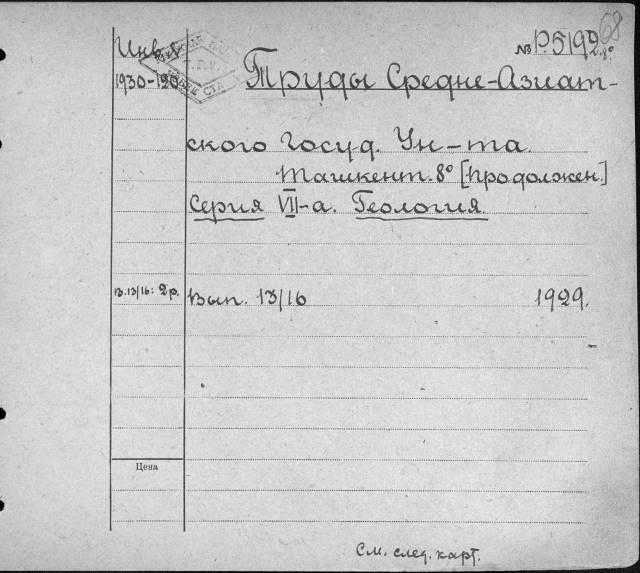 68
Инв. №
№ Р5192 8°
1930-120
Труды Средне-Азиат-
ского Госуд. Ун-та.
Ташкент. 8° [Продолжен.]
Серия VII-а. Геология.
В. 13/16: 2 р.
Вып. 13/16 1929.
Цена
См. след. карт.